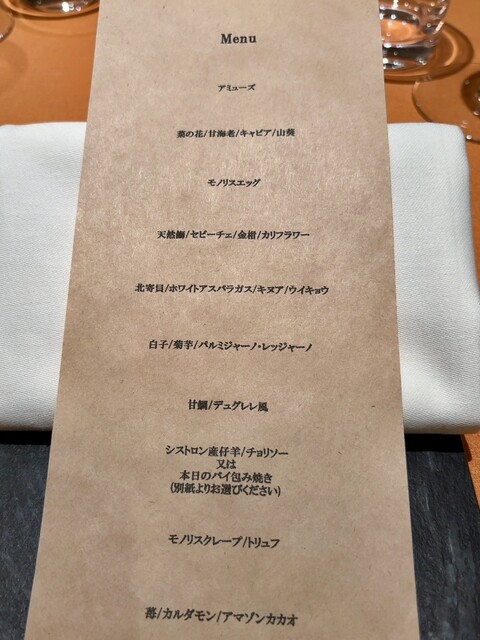 Menu
アミューズ
菜の花/甘海老/キャビア/山葵
モノリスエッグ
天然鰤/セビーチェ/金柑/カリフラワー
北寄貝/ホワイトアスパラガス/キヌア/ウイキョウ
白子/菊芋/パルミジャーノ・レッジャーノ
甘鯛/デュグレレ風
シストロン産仔羊/チョリソー
又は
本日のパイ包み焼き
(別紙よりお選びください)
モノリスクレープ/トリュフ
苺/カルダモン/アマゾンカカオ